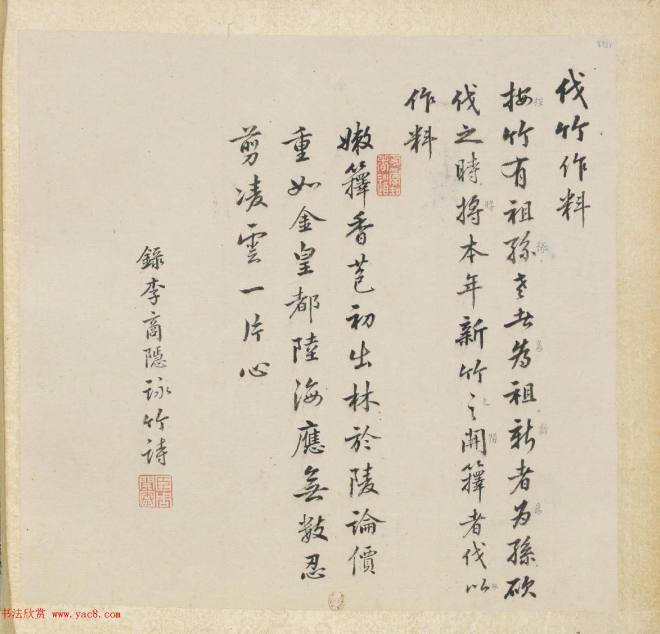 伐竹作料
按竹有祖孫老者為祖新者為孫砍
伐之時將本年新竹之開籜者伐以
作料
嫩籜香苞初出林於陵論價
重如金皇都陸海應無數忍
剪凌雲一片心
錄李商隱詠竹詩
书法欣赏 www.yac8.com